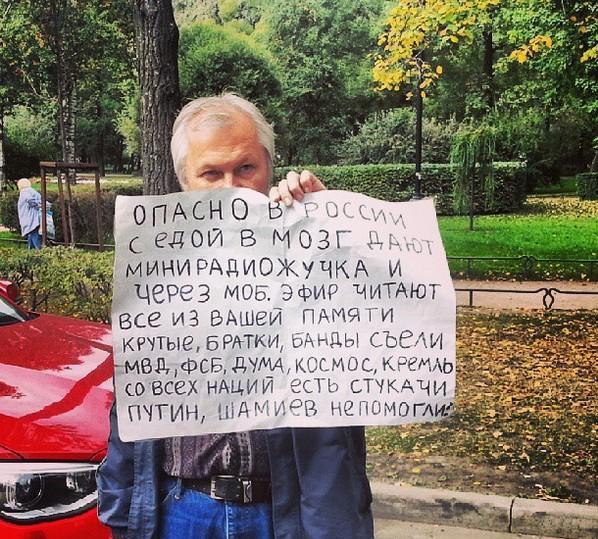 ОПАСНО В РОССИИ
С ЕДОЙ В МОЗГ ДАЮТ
МИНИРАДИОЖУЧКА И
ЧЕРЕЗ МОБ. ЭФИР ЧИТАЮТ
ВСЕ ИЗ ВАШЕЙ ПАМЯТИ
КРУТЫЕ, БРАТКИ, БАНДЫ СЪЕЛИ
МВД, ФСБ, ДУМА, КОСМОС, КРЕМЛЬ
СО ВСЕХ НАЦИЙ ЕСТЬ СТУКАЧИ
ПУТИН, ШАМИЕВ НЕПОМОГЛИ.